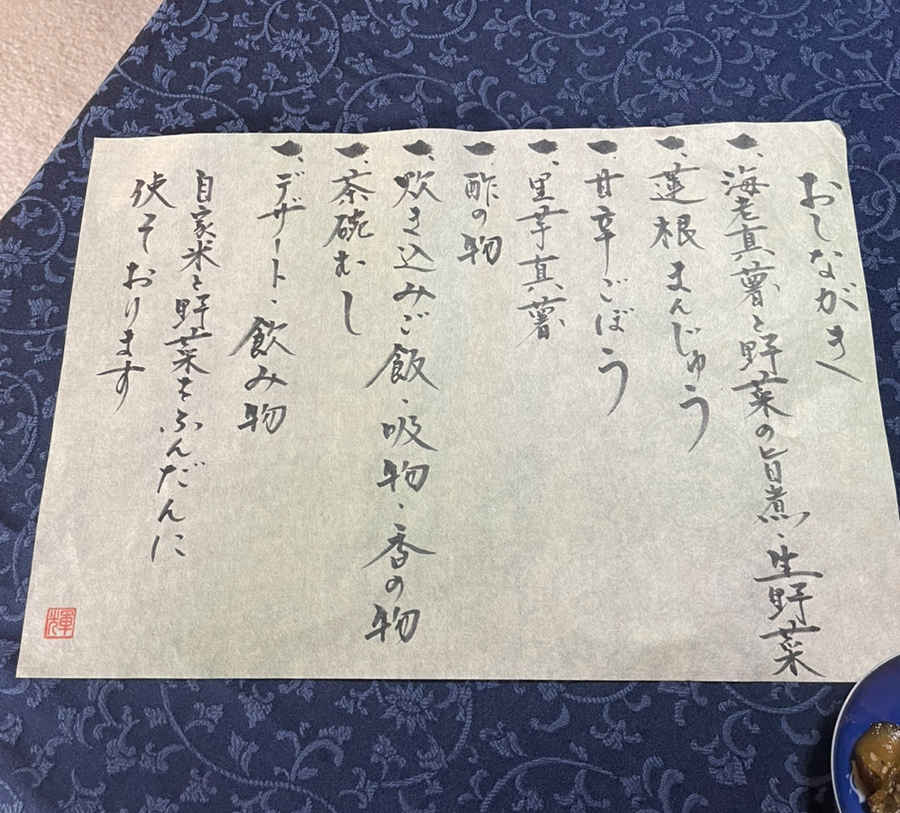 おしながき
一、海老真薯と野菜の旨煮・生野菜
一、蓮根まんじゅう
一、甘辛ごぼう
一、里芋真薯
一、酢の物
一、炊き込みご飯・吸物・香の物
一、茶碗むし
一、デザート・飲み物
自家米と野菜をふんだんに
使ております
輝